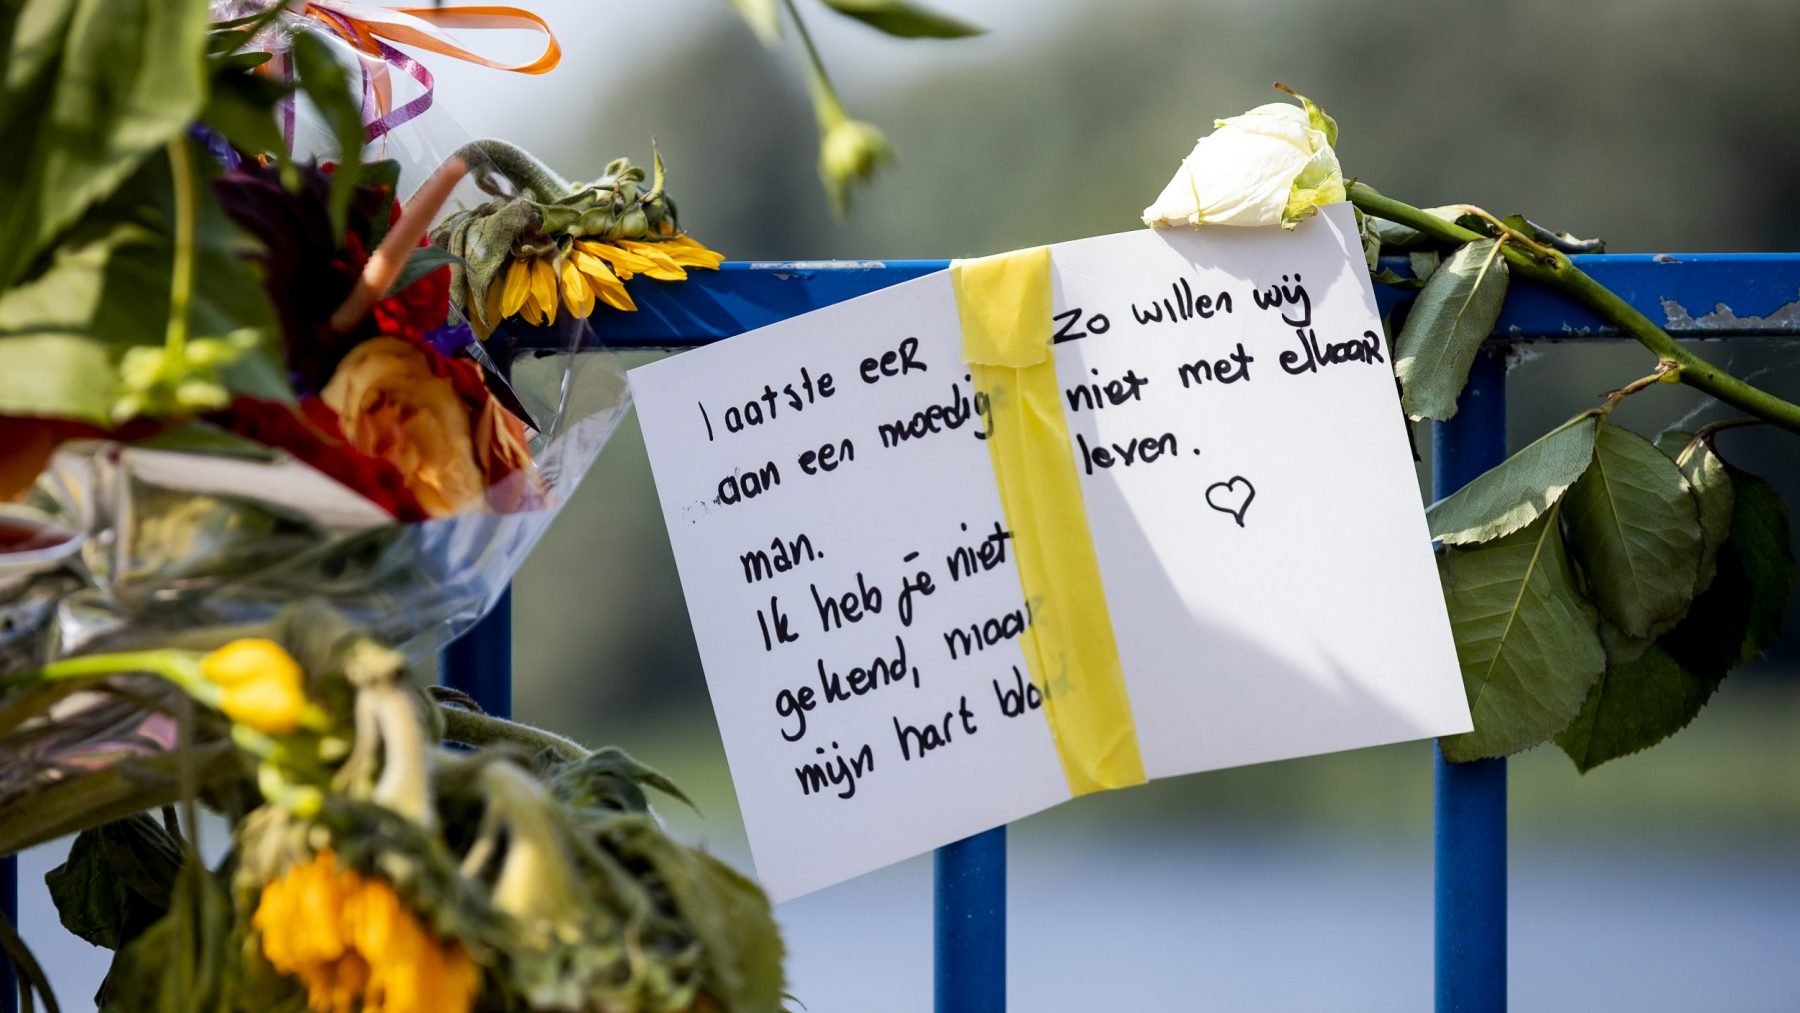 laatste eer
aan een moedig
man.
Ik heb je niet
gekend, maar
mijn hart bloedt
Zo willen wij
niet met elkaar
leven.